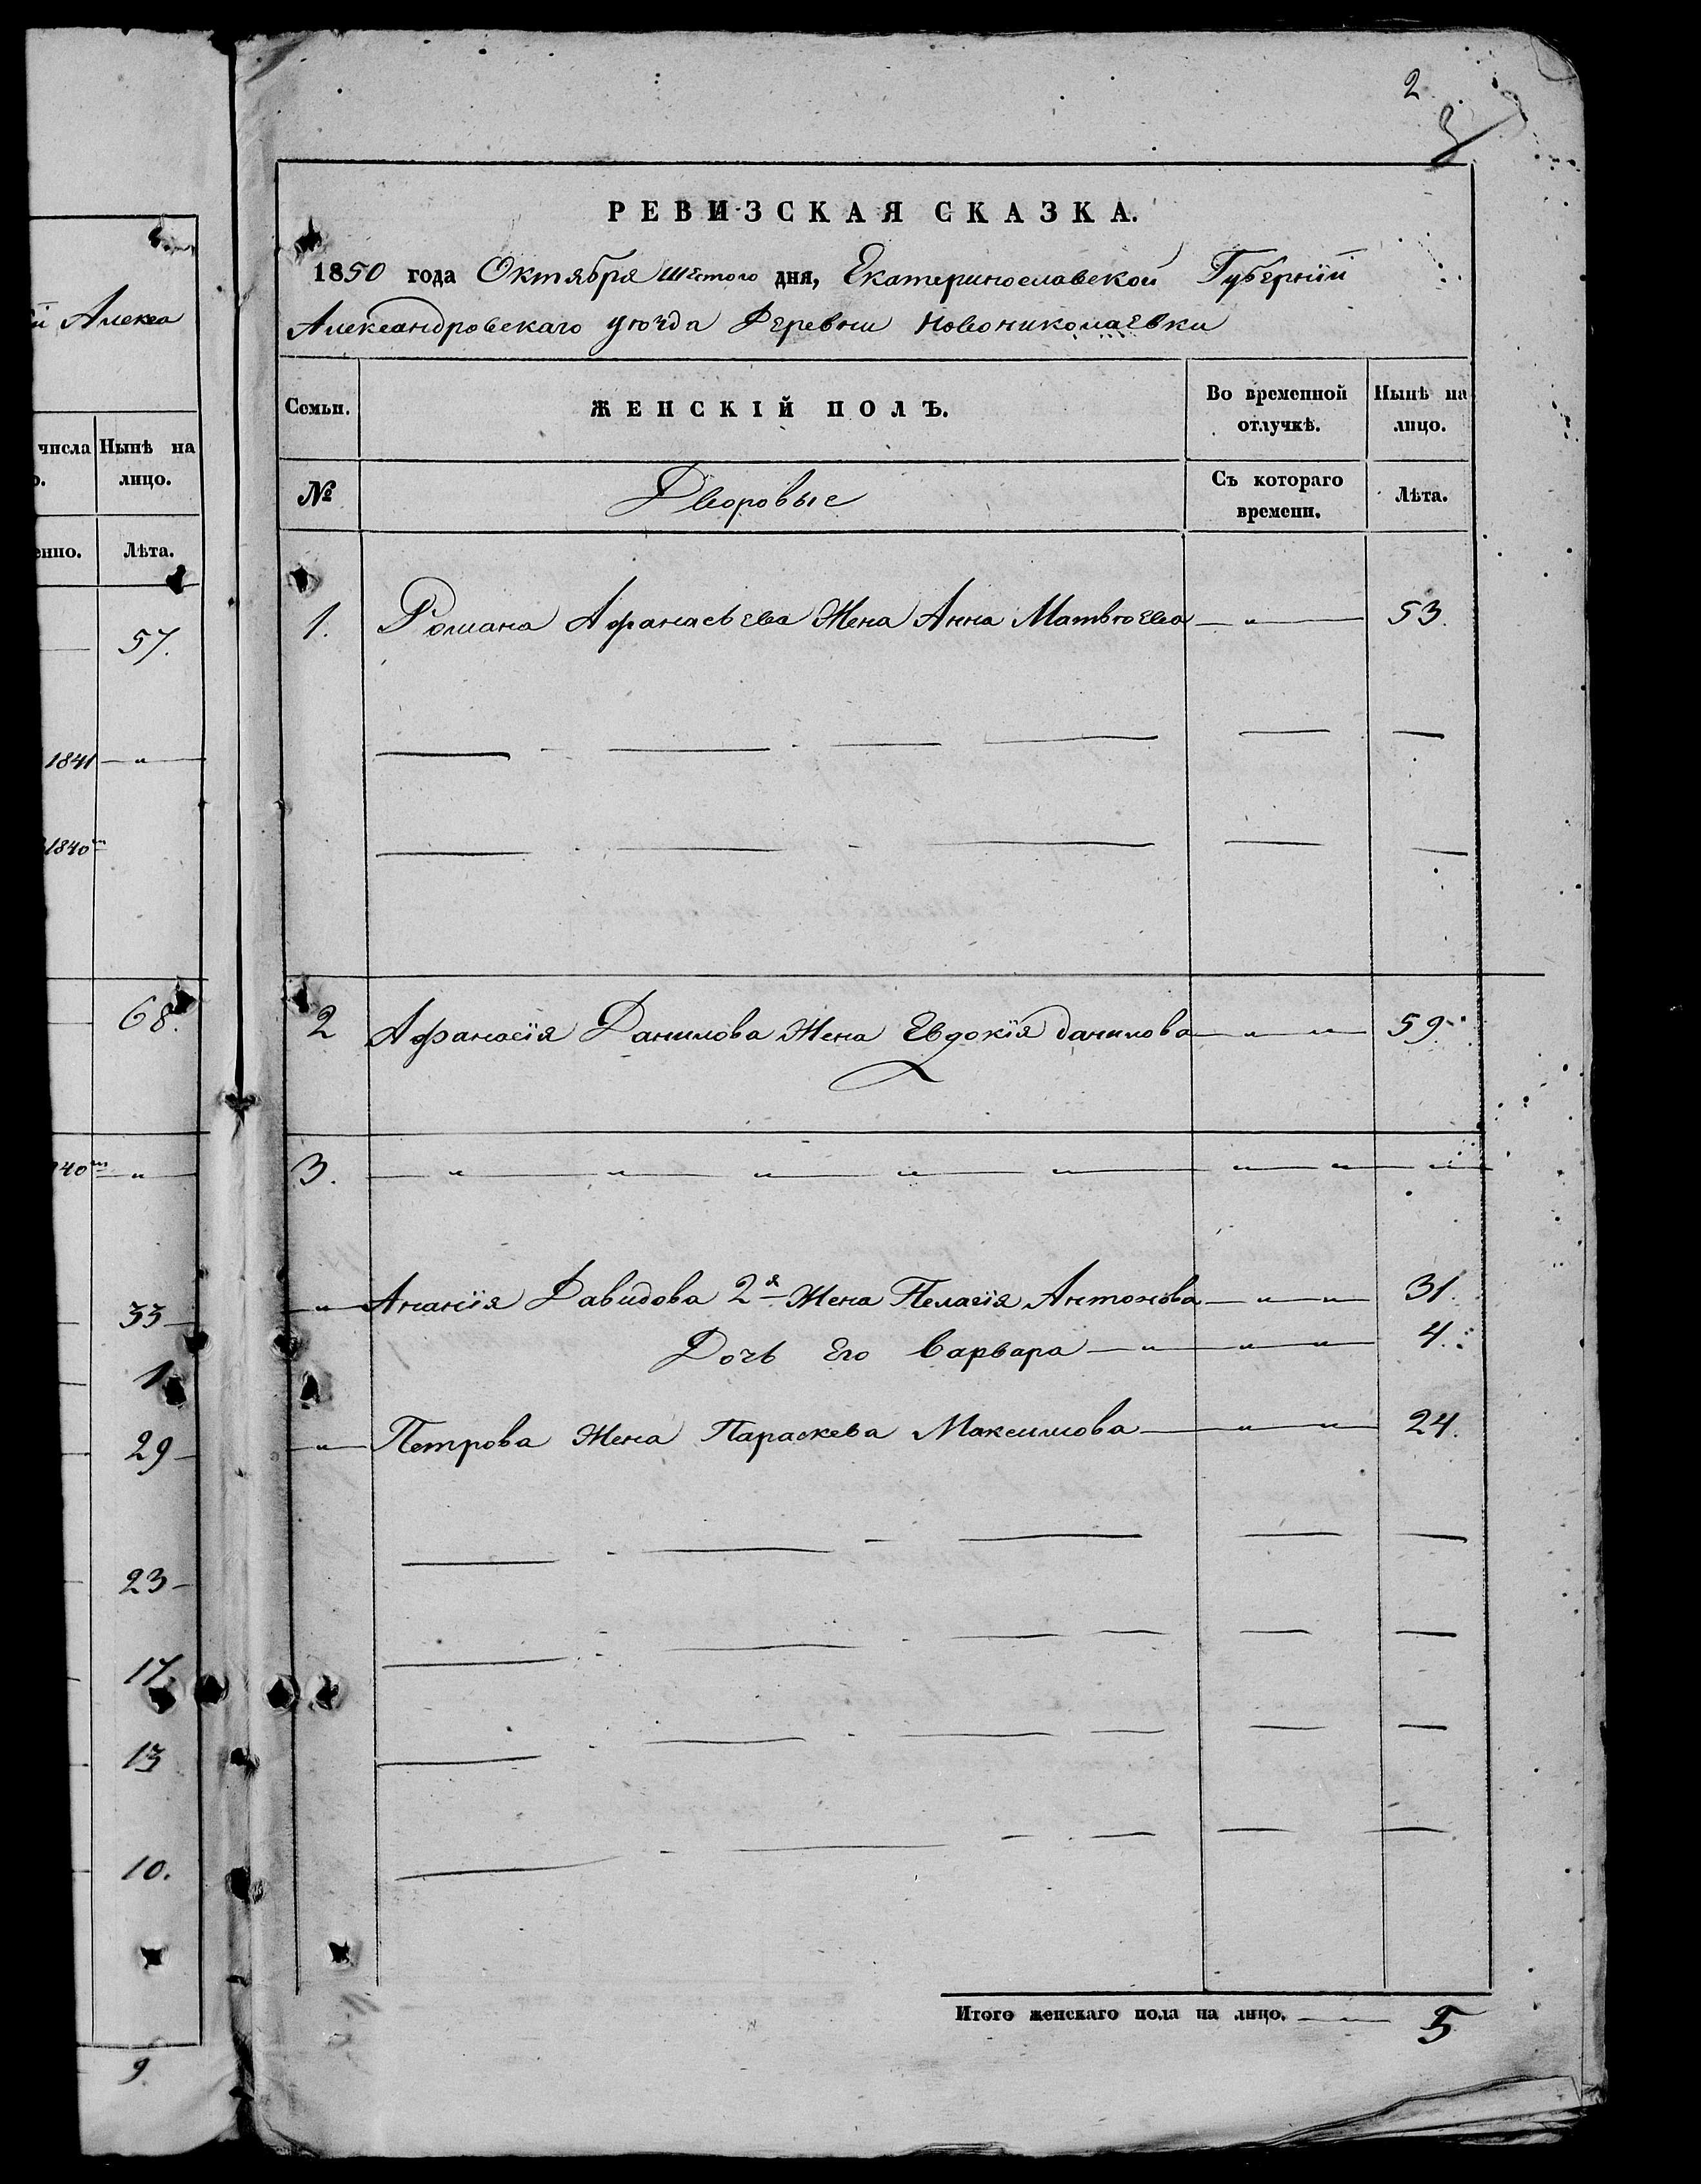 й Алекса
числа Нынѣ на
о. лицо.
енно. Лѣта.
57.
1841 — " —
1840го
68.
40го — " —
33
1
29
23
17
13
10.
9
2
3
РЕВИЗСКАЯ СКАЗКА.
1850 года Октября шестого дня, Екатеринославской Губерніи
Александровскаго уѣзда Деревни Новониколаевки
Семьи. ЖЕНСКІЙ ПОЛЪ. Во временной отлучкѣ. Нынѣ на лицо.
№ Дворовые Съ котораго времени. Лѣта.
1. Романа Афанасьева Жена Анна Матвѣева — " — 53.
2 Афанасія Данилова Жена Евдокія данилова — " — " — 59.
3. — " — " — " — " — " — " — " — " —
— " — Ананія Давидова 2я Жена Пелагія Антонова — " — " — 31.
Дочь Его Варвара — " — " — " — 4.
— " — Петрова Жена Параскева Максимова — " — " — 24.
Итого женскаго пола на лицо. — " — 5